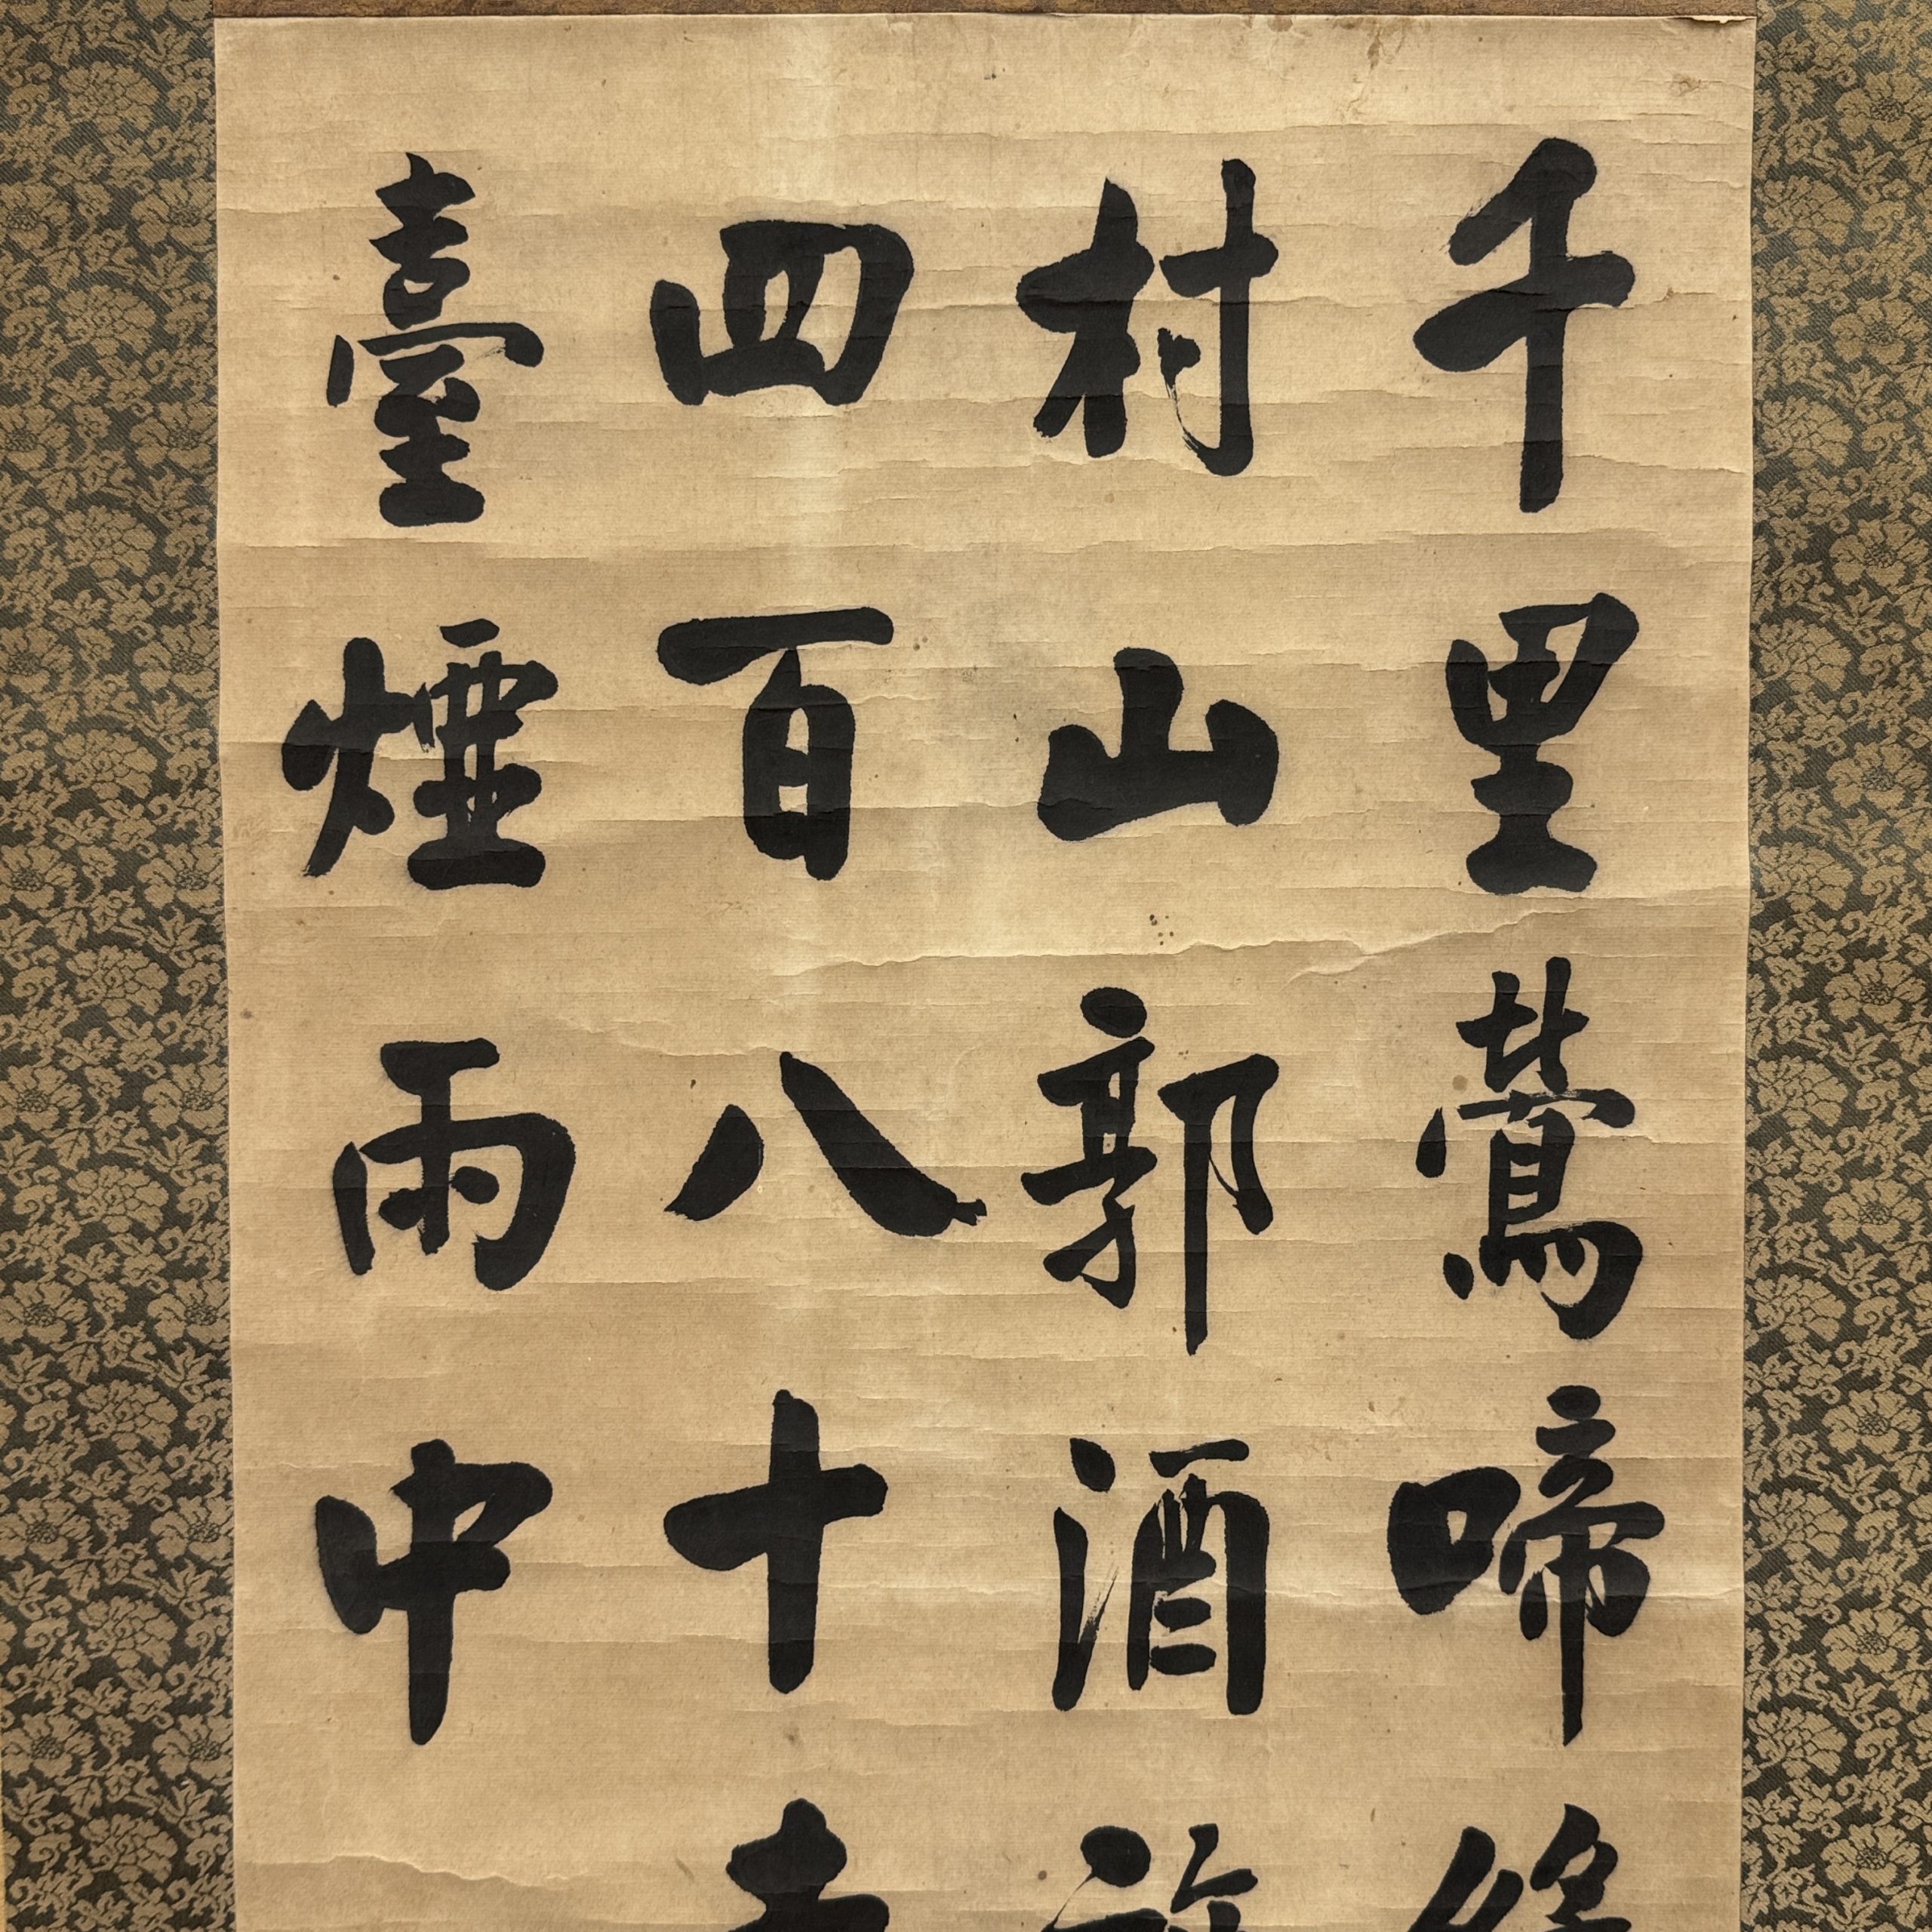 千里鶯啼
村山郭酒
四百八十
臺煙雨中